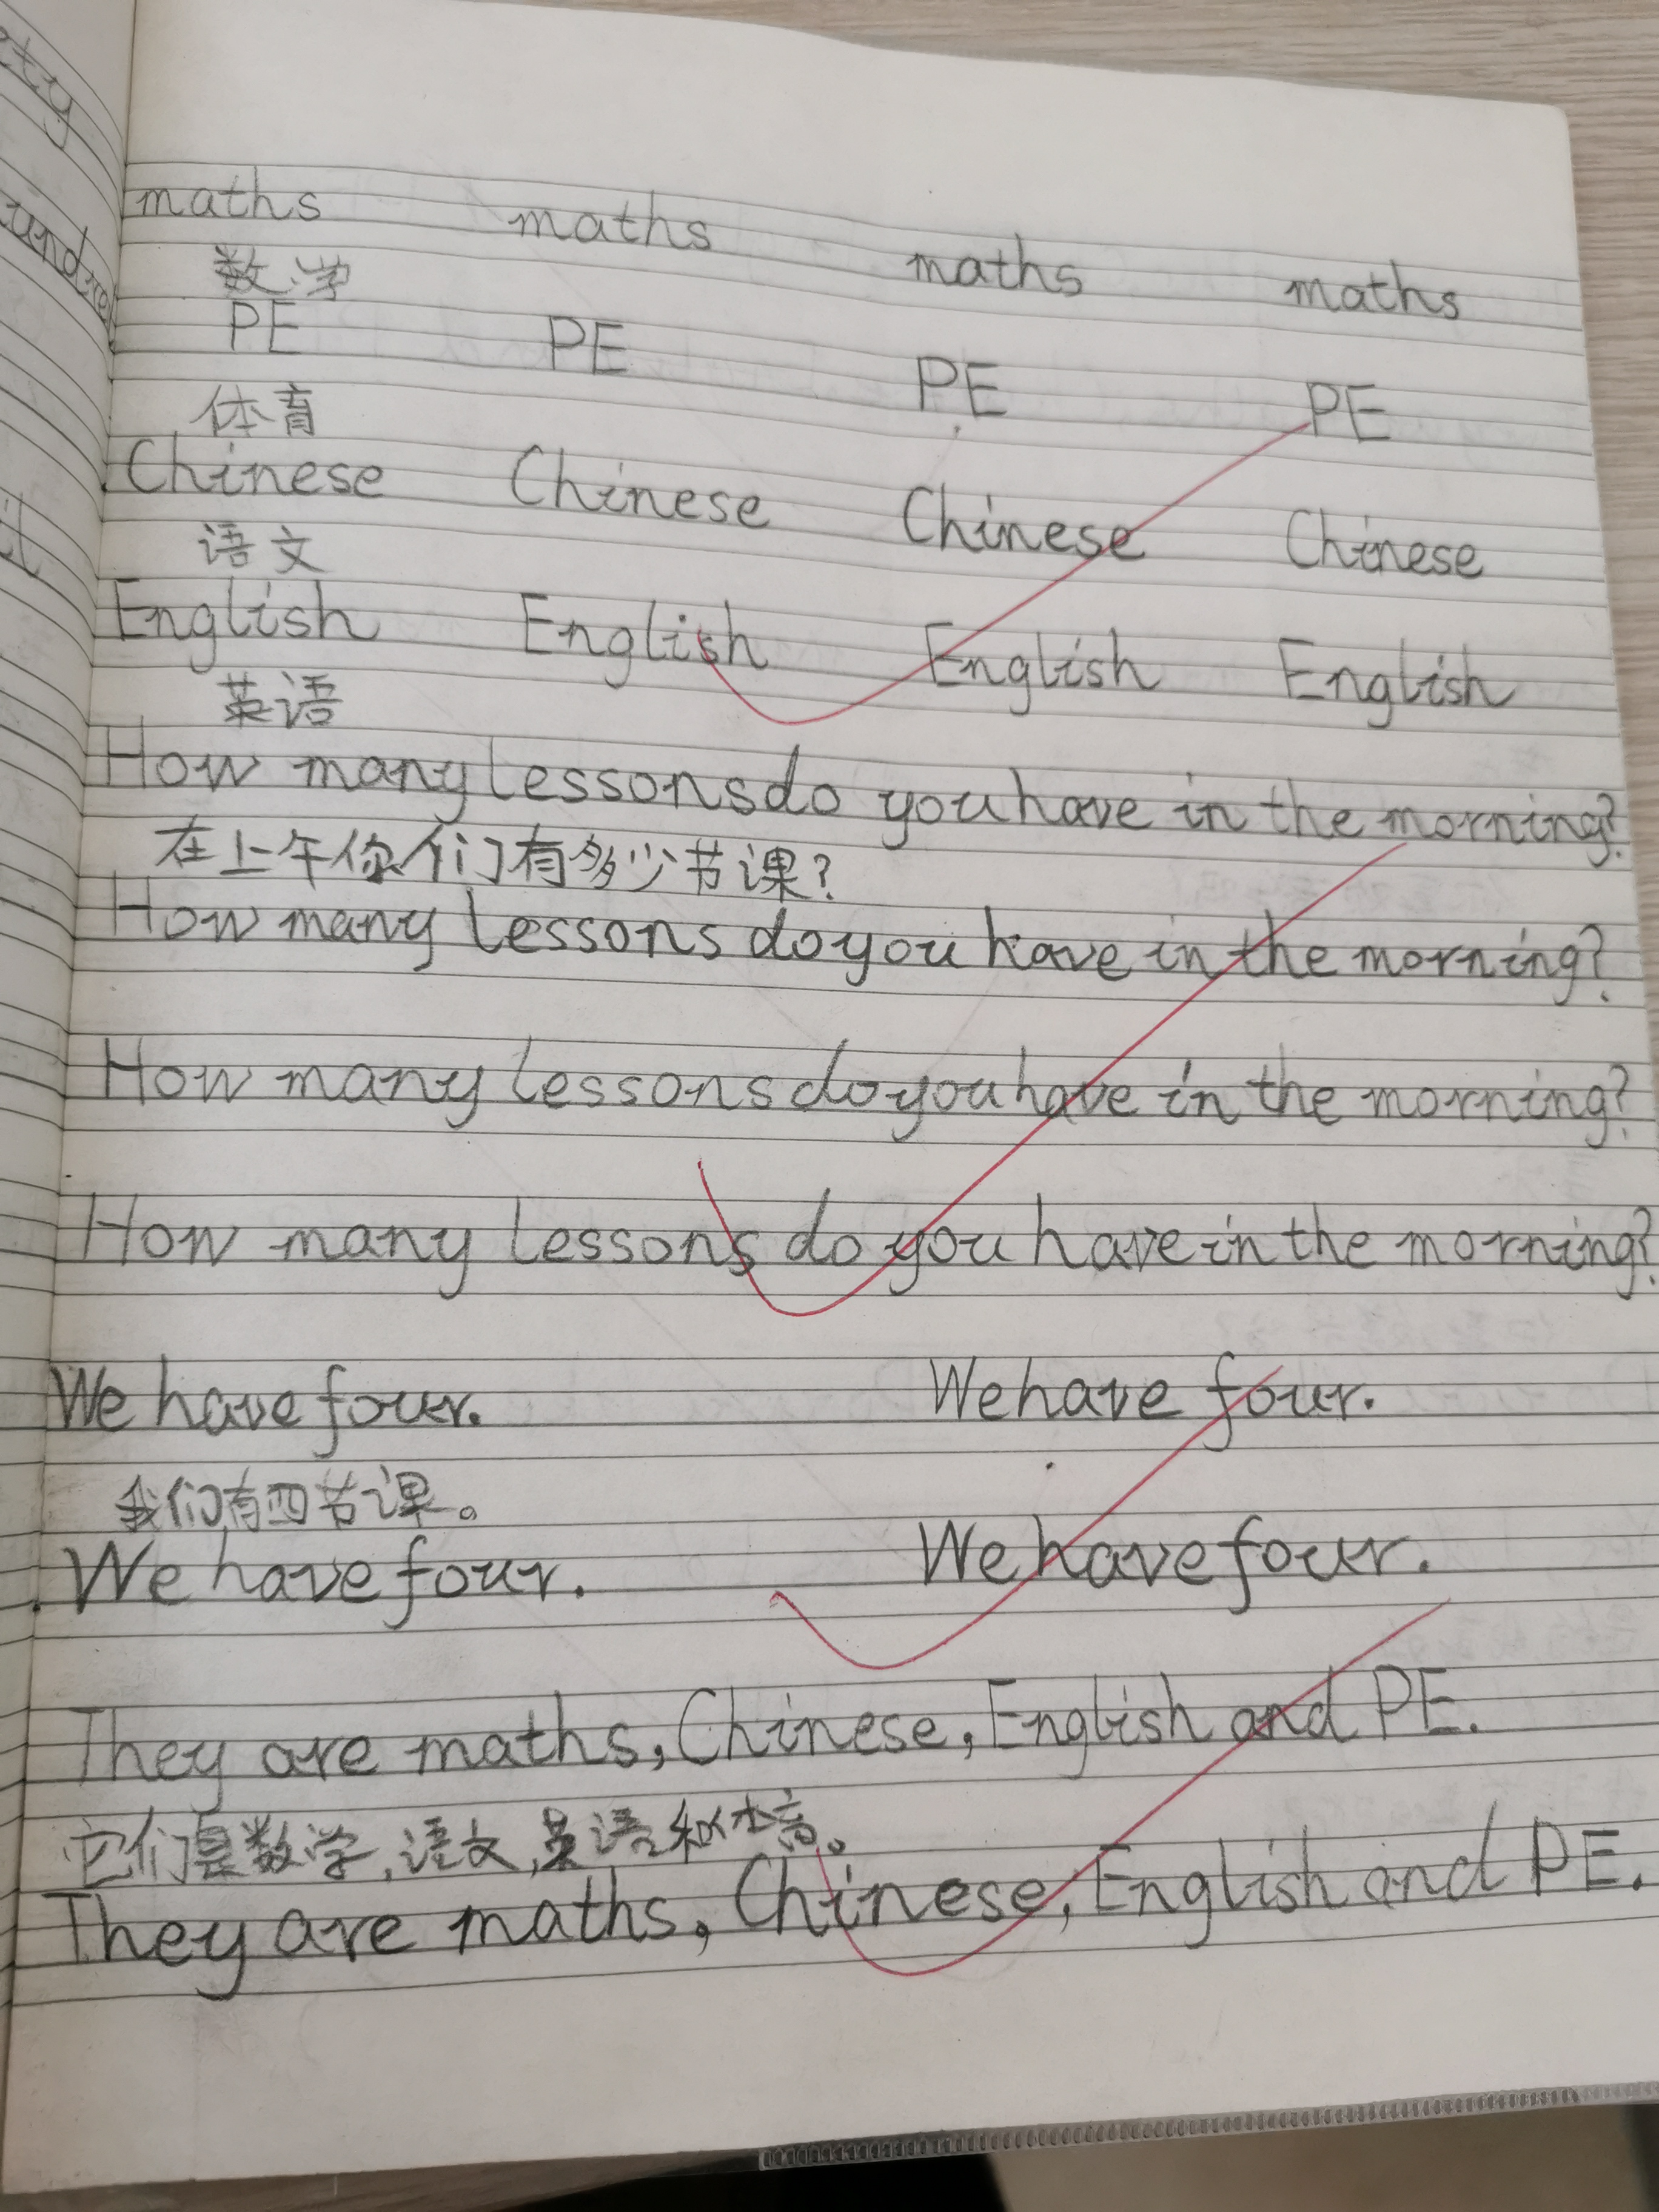 maths maths maths maths
数学
PE PE PE PE
体育
Chinese Chinese Chinese Chinese
语文
English English English English
英语
How many lessons do you have in the morning?
在上午你们有多少节课?
How many lessons do you have in the morning?
How many lessons do you have in the morning?
How many lessons do you have in the morning?
We have four. We have four.
我们有四节课。
We have four. We have four.
They are maths, Chinese, English and PE.
它们是数学,语文,英语和体育。
They are maths, Chinese, English and PE.